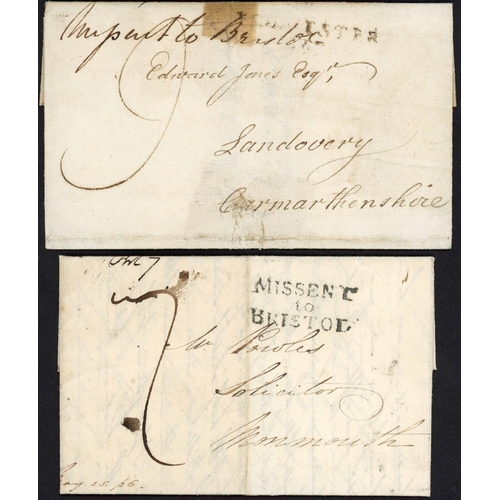 to Bristol
9
Edward Jones Esqr,
Landovery
Carmarthenshire
7
MISSENT
to
BRISTOL
Mr Powles
Solicitor
Monmouth